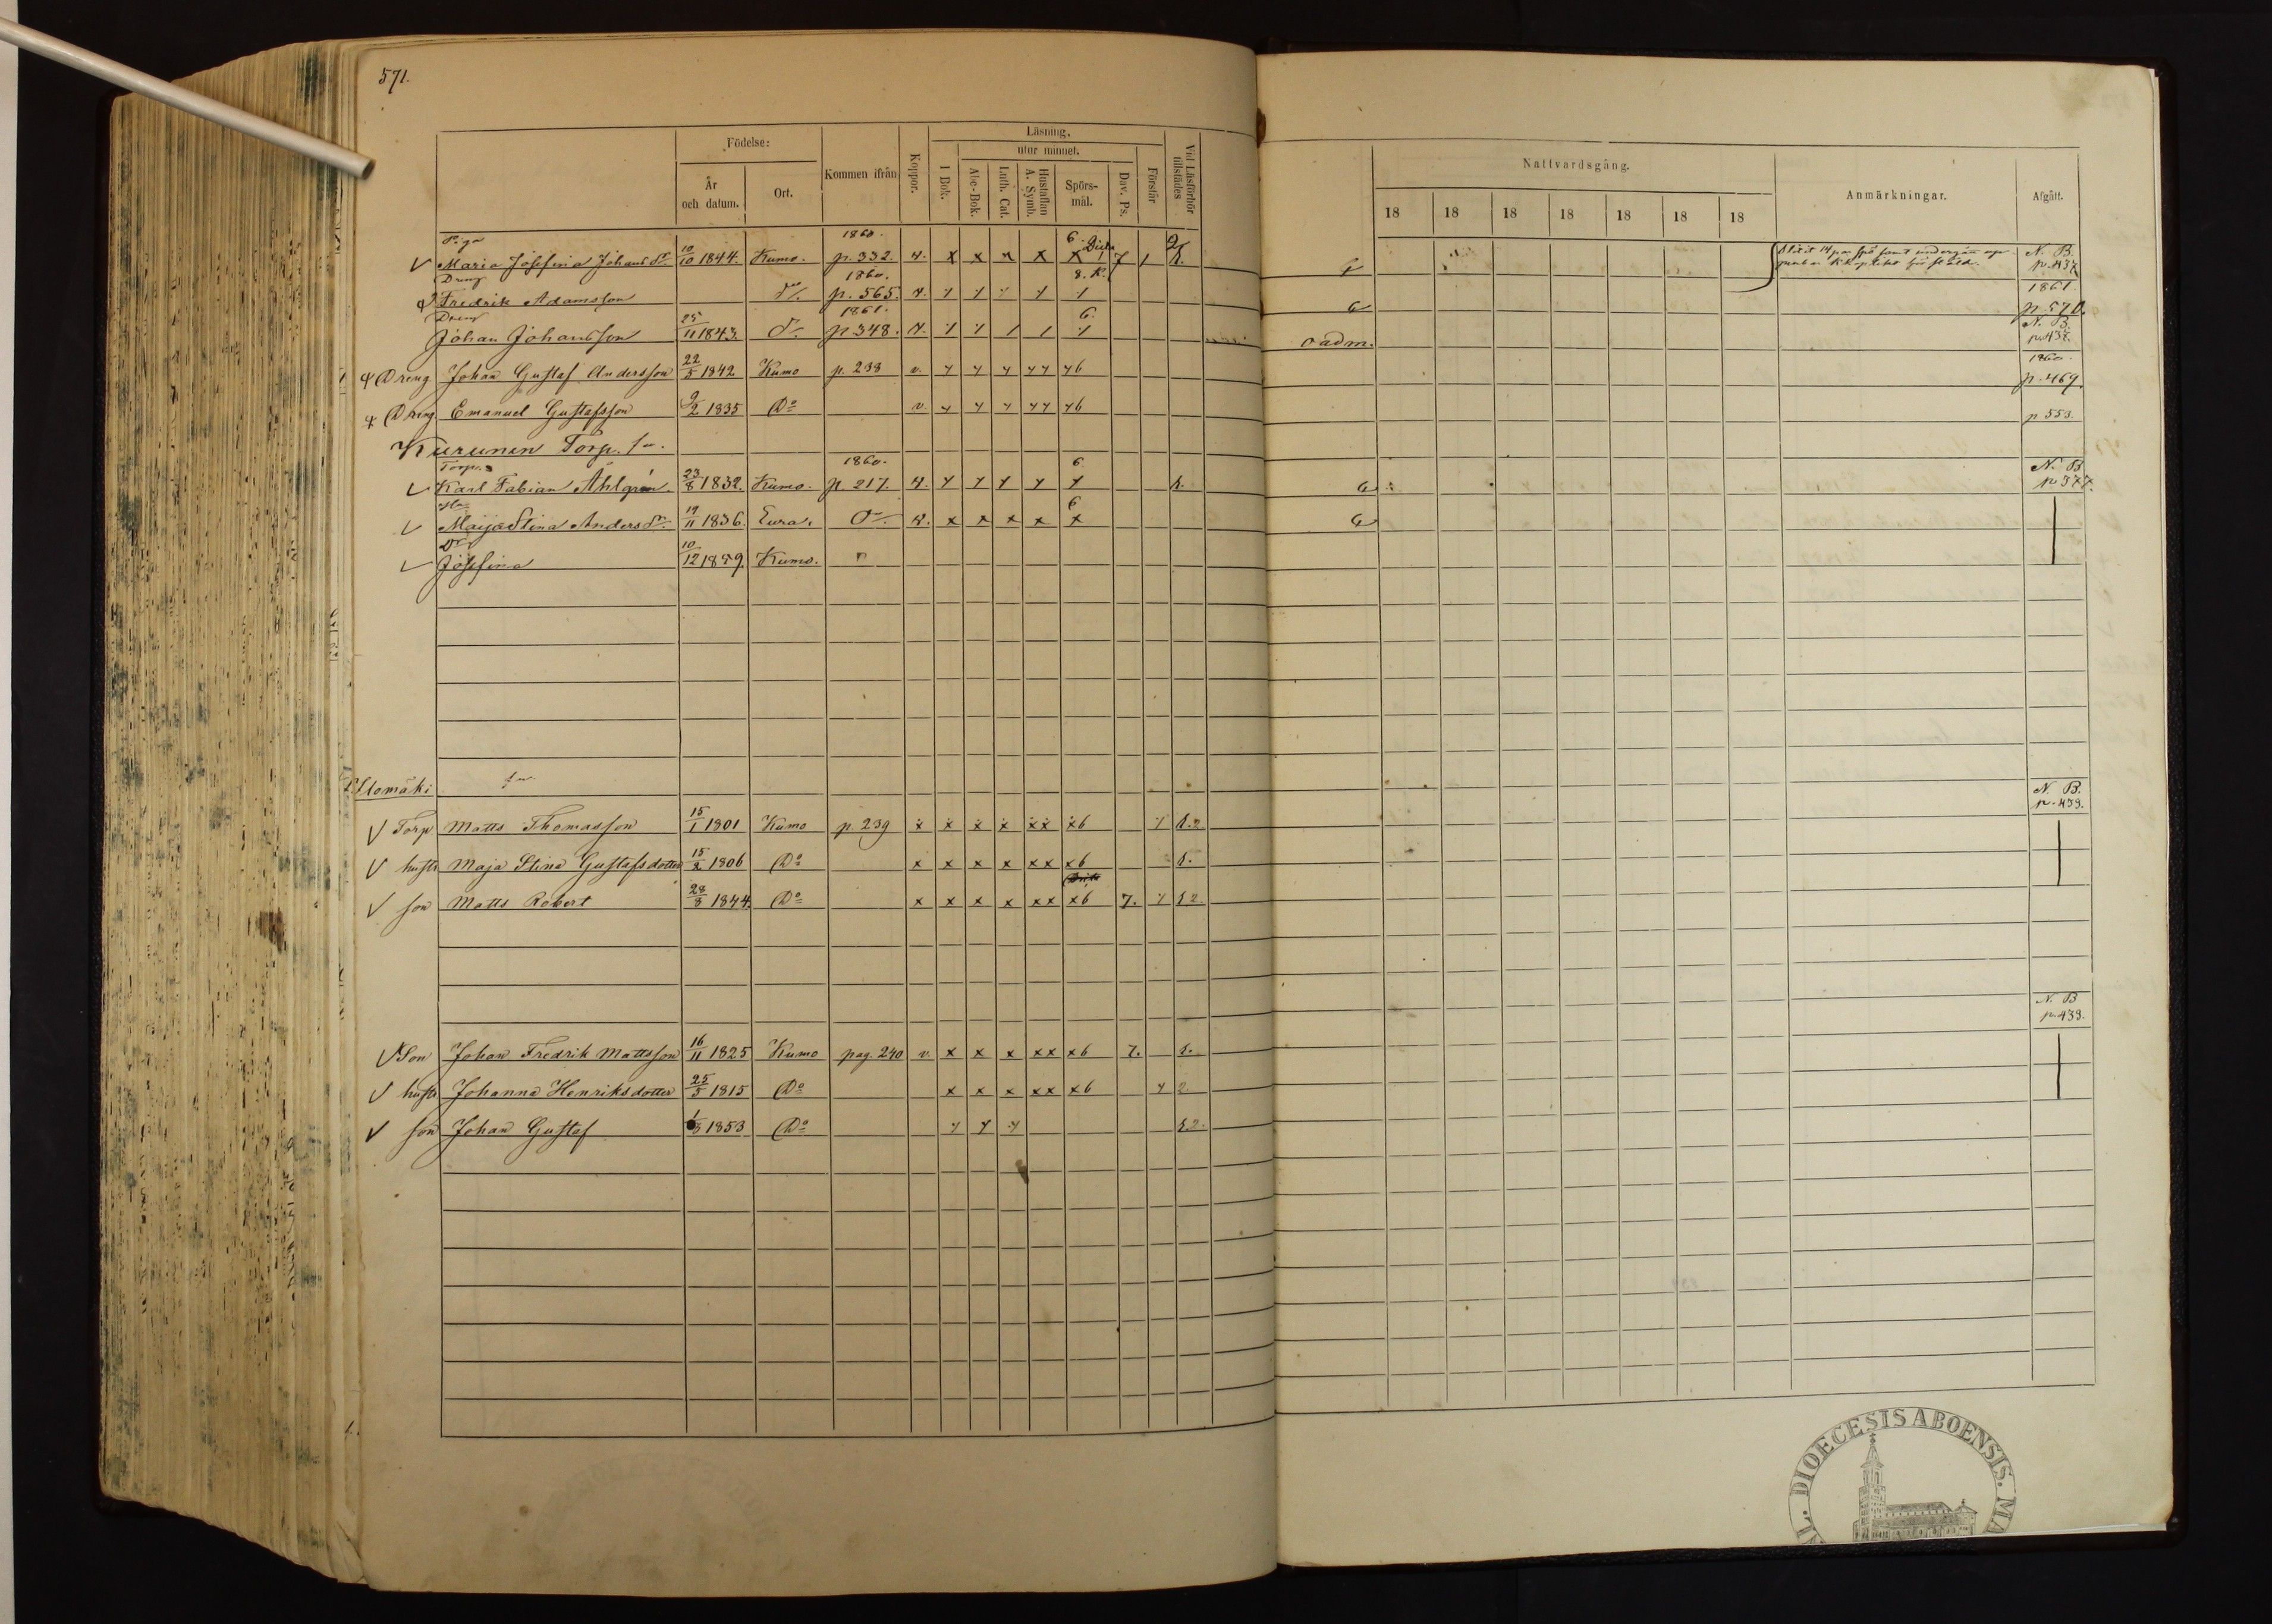 571.
Födelse: Kommen ifrån Koppor. Läsning. Vid Läsförhör tillstädes Nattvardsgång. Anmärkningar. Afgått.
År och datum. Ort. I Bok. utur minnet. Förstår
Abc-Bok. Luth. Cat. Hustaflan A. Symb. Spörs-mål. Dav. Ps.
18 18 18 18 18 18 18
Piga 1860. 6. N. B.
Maria Josefina Johansdr 10/10 1844. Kumo. p. 332. x x x x x 7 1 p. 437
Dreng 1860. 1861.
Fredrik Adamsson p. 565. p. 570.
Dreng 1861. 6. N. B.
Johan Johansson 25/11 1843. Do p 348. oadm. p. 438.
1860.
Dreng Johan Gustaf Andersson 22/5 1842 Kumo p. 238 v. 6 p. 469.
Dreng Emanuel Gustafsson 9/2 1835 Do v. 6 p 553.
Kurunen Torp.
Torp. 1860. 6 N. B
Karl Fabian Åhlgrén. 23/8 1832. Kumo. p. 217.
6
Maija Stina Andersdr. 19/11 1836. Eura. x x x x x
Dr
Josefina 10/12 1859. Kumo.
Ilomäki N. B.
p. 439.
Torp Matts Thomasson 15/1 1801 Kumo p. 239 x x x x xx x6
hustr Maja Stina Gustafsdotter 15/2 1806 Do x x x x xx x6
son Matts Robert 28/8 1844 Do x x x x xx x6 7.
N. B
p. 439.
Son Johan Fredrik Mattsson 16/11 1825 Kumo pag. 240 v. x x x xx x6 7.
hustr Johanna Henriksdotter 25/5 1815 Do x x x xx x6 2.
son Johan Gustaf 1853 Do
DIOECESIS ABOENSIS. MA